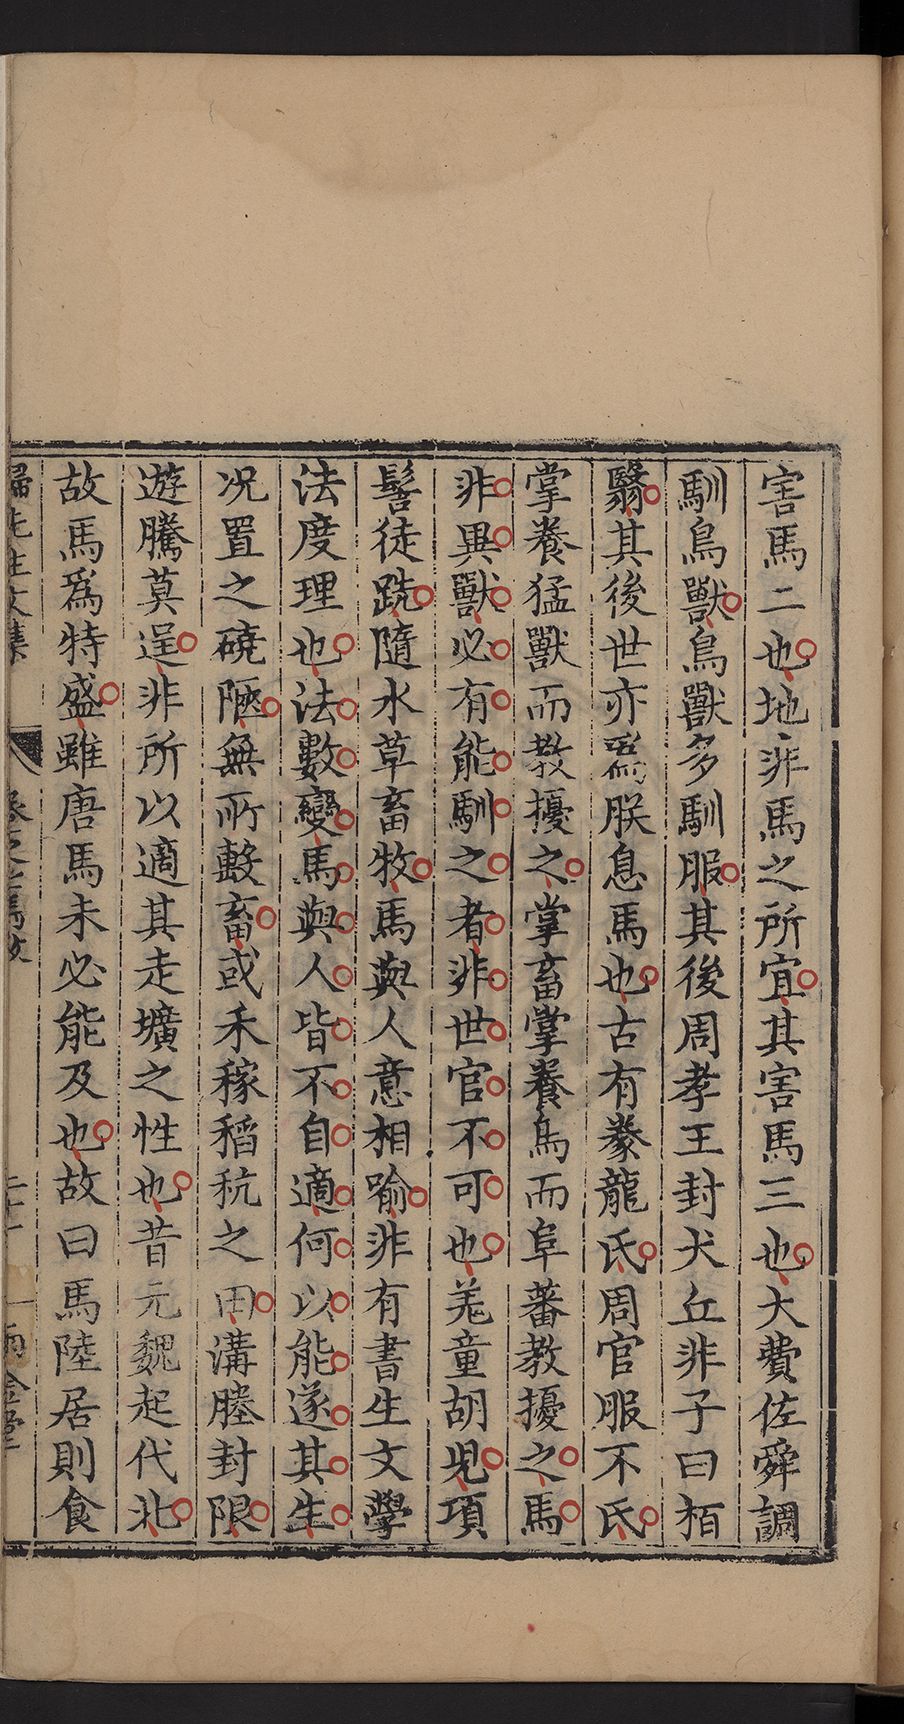 害馬二也地非馬之所宜其害馬三也大費佐舜調
馴鳥獸鳥獸多馴服其後周孝王封犬丘非子曰栢
翳其後世亦爲朕息馬也古有豢龍氏周官服不氏
掌養猛獸而教擾之掌畜掌養鳥而阜蕃教擾之馬
非異獸必有能馴之者非世官不可也羌童胡兒項
髻徒跣隨水草畜牧馬與人意相喻非有書生文學
法度理也法數變馬與人皆不自適何以能遂其生
况置之磽陋無所斁畜或禾稼稻秔之田溝塍封限
遊騰莫逞非所以適其走壙之性也昔元魏起代北
故馬爲特盛雖唐馬未必能及也故曰馬陸居則食
歸先生文集 卷之 馬政 二十一 雨金堂